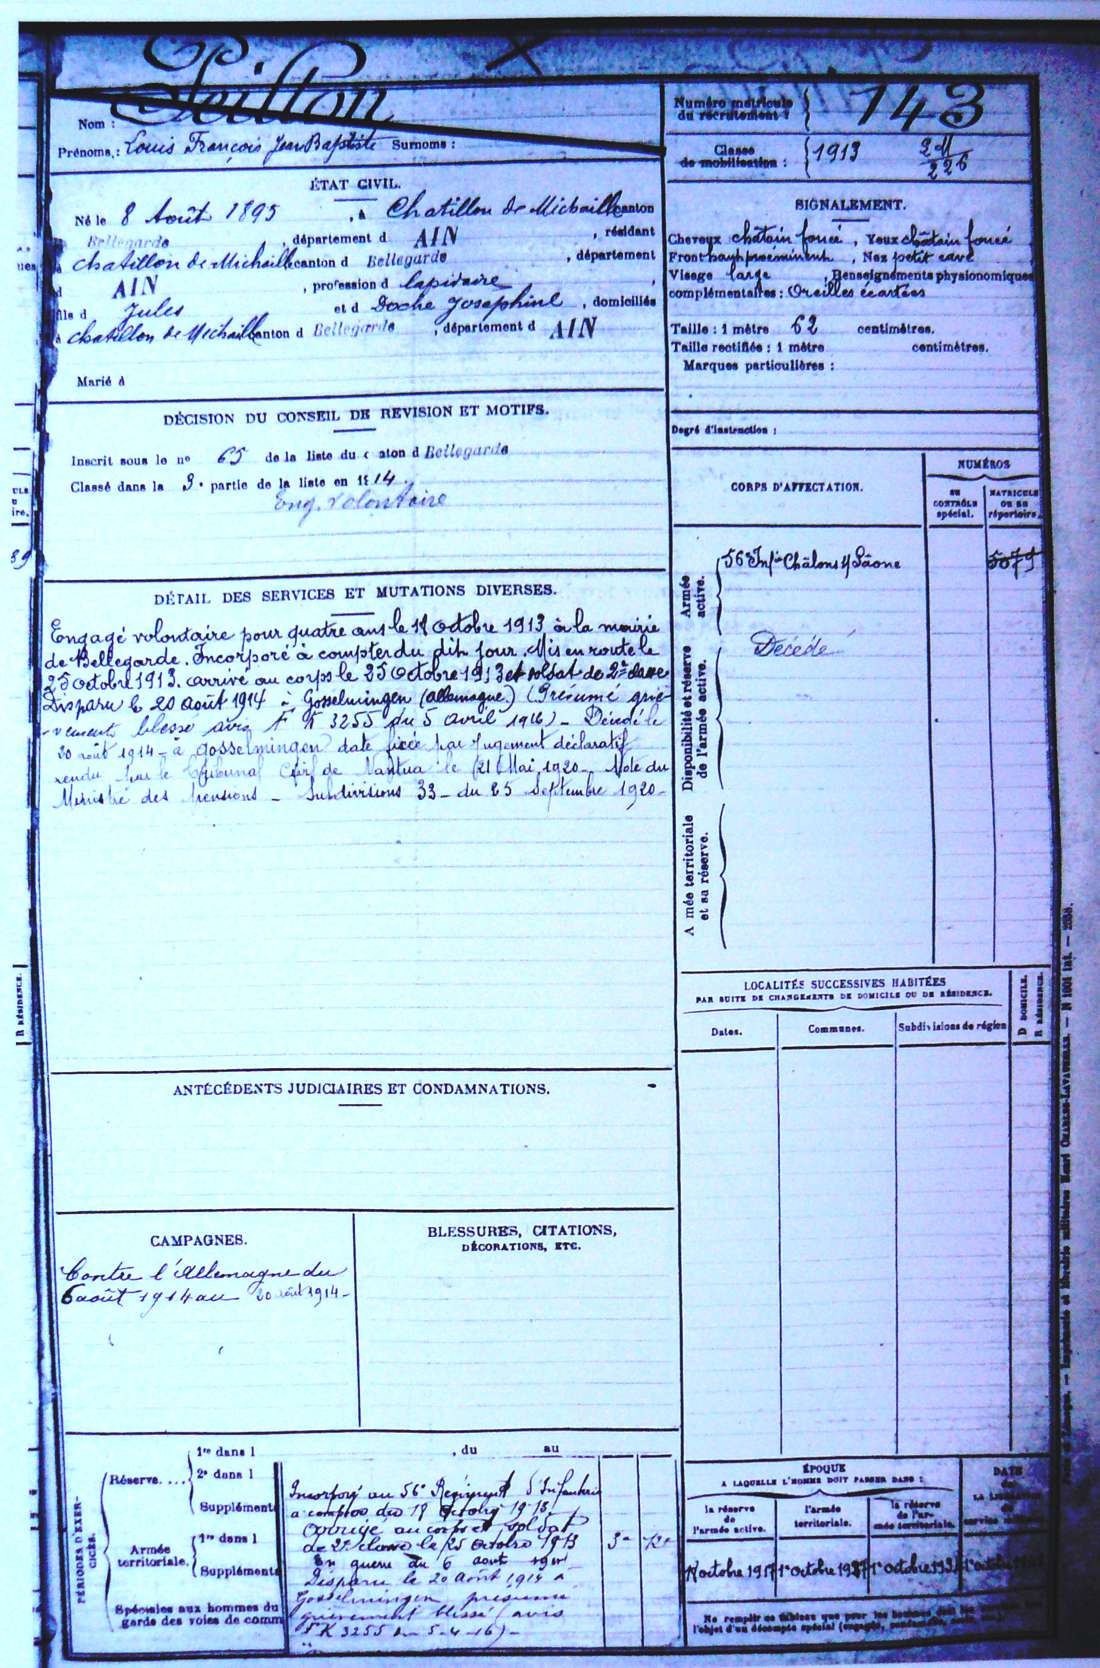 Seitton
Nom :
Prénoms : Louis François Jean Baptiste Surnoms :
Numéro matricule
du recrutement : 143
Classe
de mobilisation : 1913
226
ÉTAT CIVIL.
Né le 8 Août 1895, à Chatillon de Michaille canton
Bellegarde, département d AIN, résidant
à chatillon de Michaille canton d Bellegarde, département
d AIN, profession d lapidaire,
fils d Jules et d Doche Josephine, domiciliés
à chatillon de Michaille canton d Bellegarde, département d AIN
Marié à
SIGNALEMENT.
Cheveux châtain foncé, Yeux châtain foncé
Front haut proeminent, Nez petit cave
Visage large, Renseignements physionomiques
complémentaires : Oreilles écartées
Taille : 1 mètre 62 centimètres.
Taille rectifiée : 1 mètre centimètres.
Marques particulières :
Degré d'instruction :
DÉCISION DU CONSEIL DE REVISION ET MOTIFS.
Inscrit sous le n° 65 de la liste du canton d Bellegarde
Classé dans la 3e partie de la liste en 1914.
Eng. volontaire
CORPS D'AFFECTATION.
NUMÉROS
AU CONTRÔLE spécial.
MATRICULE OU AU répertoire.
Armée active.
56e Infie Châlons s/ Sâone
5079
Disponibilité et réserve de l'armée active.
Décédé
Armée territoriale et sa réserve.
DÉTAIL DES SERVICES ET MUTATIONS DIVERSES.
Engagé volontaire pour quatre ans le 18 Octobre 1913 à la mairie
de Bellegarde. Incorporé à compter du dit jour. Mis en route le
25 Octobre 1913. arrivé au corps le 25 Octobre 1913 et soldat de 2e classe
Disparu le 20 Août 1914 à Gosselmingen (allemagne) (Présumé griè-
vement blessé avis F K 3255 du 5 avril 1916) - Décédé le
20 août 1914 - à Gosselmingen date fixée par jugement déclaratif
rendu par le Tribunal Civil de Nantua le 21 Mai 1920 - Note du
Ministre des Pensions - Subdivisions 33 - du 25 Septembre 1920 -
LOCALITÉS SUCCESSIVES HABITÉES
PAR SUITE DE CHANGEMENTS DE DOMICILE OU DE RÉSIDENCE.
Dates.
Communes.
Subdivisions de région
D DOMICILE.
R RÉSIDENCE.
ANTÉCÉDENTS JUDICIAIRES ET CONDAMNATIONS.
CAMPAGNES.
Contre l'Allemagne du
6 août 1914 au 20 août 1914 -
BLESSURES, CITATIONS,
DÉCORATIONS, ETC.
PÉRIODES D'EXERCICES.
Réserve....
1re dans l , du au
2e dans l
Supplément
Armée territoriale.
1re dans l
Supplément
Spéciales aux hommes du
garde des voies de comm
Incorporé au 56e Régiment d'Infanterie
à compter du 18 Octobre 1913,
Arrivé au corps et soldat
de 2e classe le 25 octobre 1913
En guerre du 6 août 1914
Disparu le 20 Août 1914 à
Gosselmingen présumé
grièvement blessé (avis
F K 3255 du 5-4-16) -
ÉPOQUE
A LAQUELLE L'HOMME DOIT PASSER DANS :
la réserve de l'armée active.
l'armée territoriale.
la réserve de l'armée territoriale.
DATE
octobre 1917
1er octobre
1er octobre
Ne remplir ce tableau que pour les hommes
l'objet d'un décompte spécial (engagés,
R RÉSIDENCE.